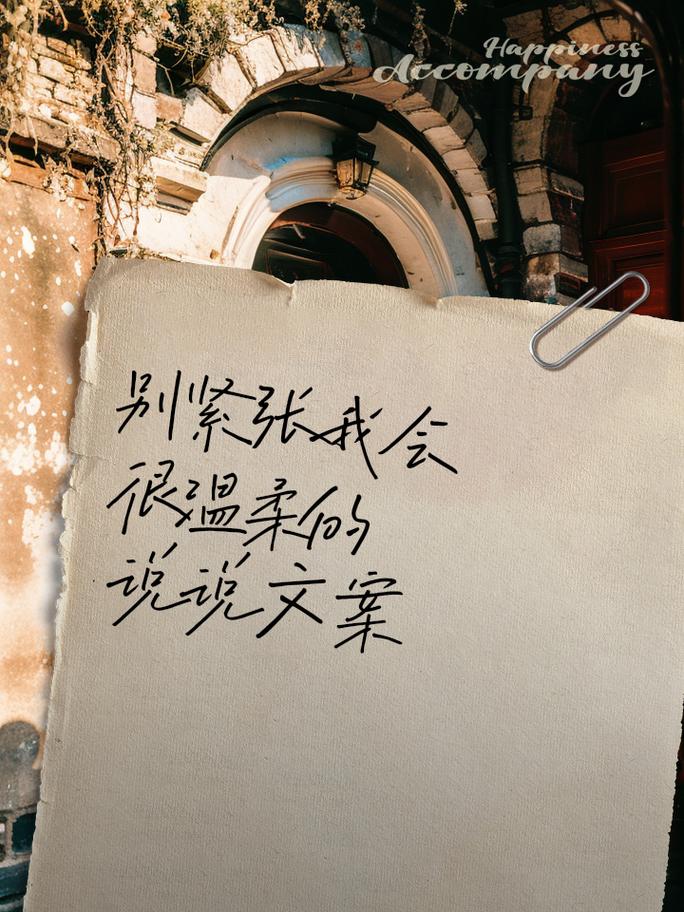 Happiness
Accompany
别紧张我会
很温柔的
说说文案